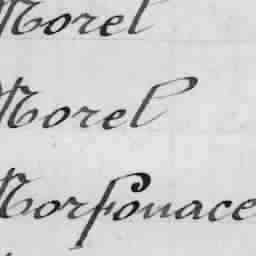 Morel
Morel
Morfouace